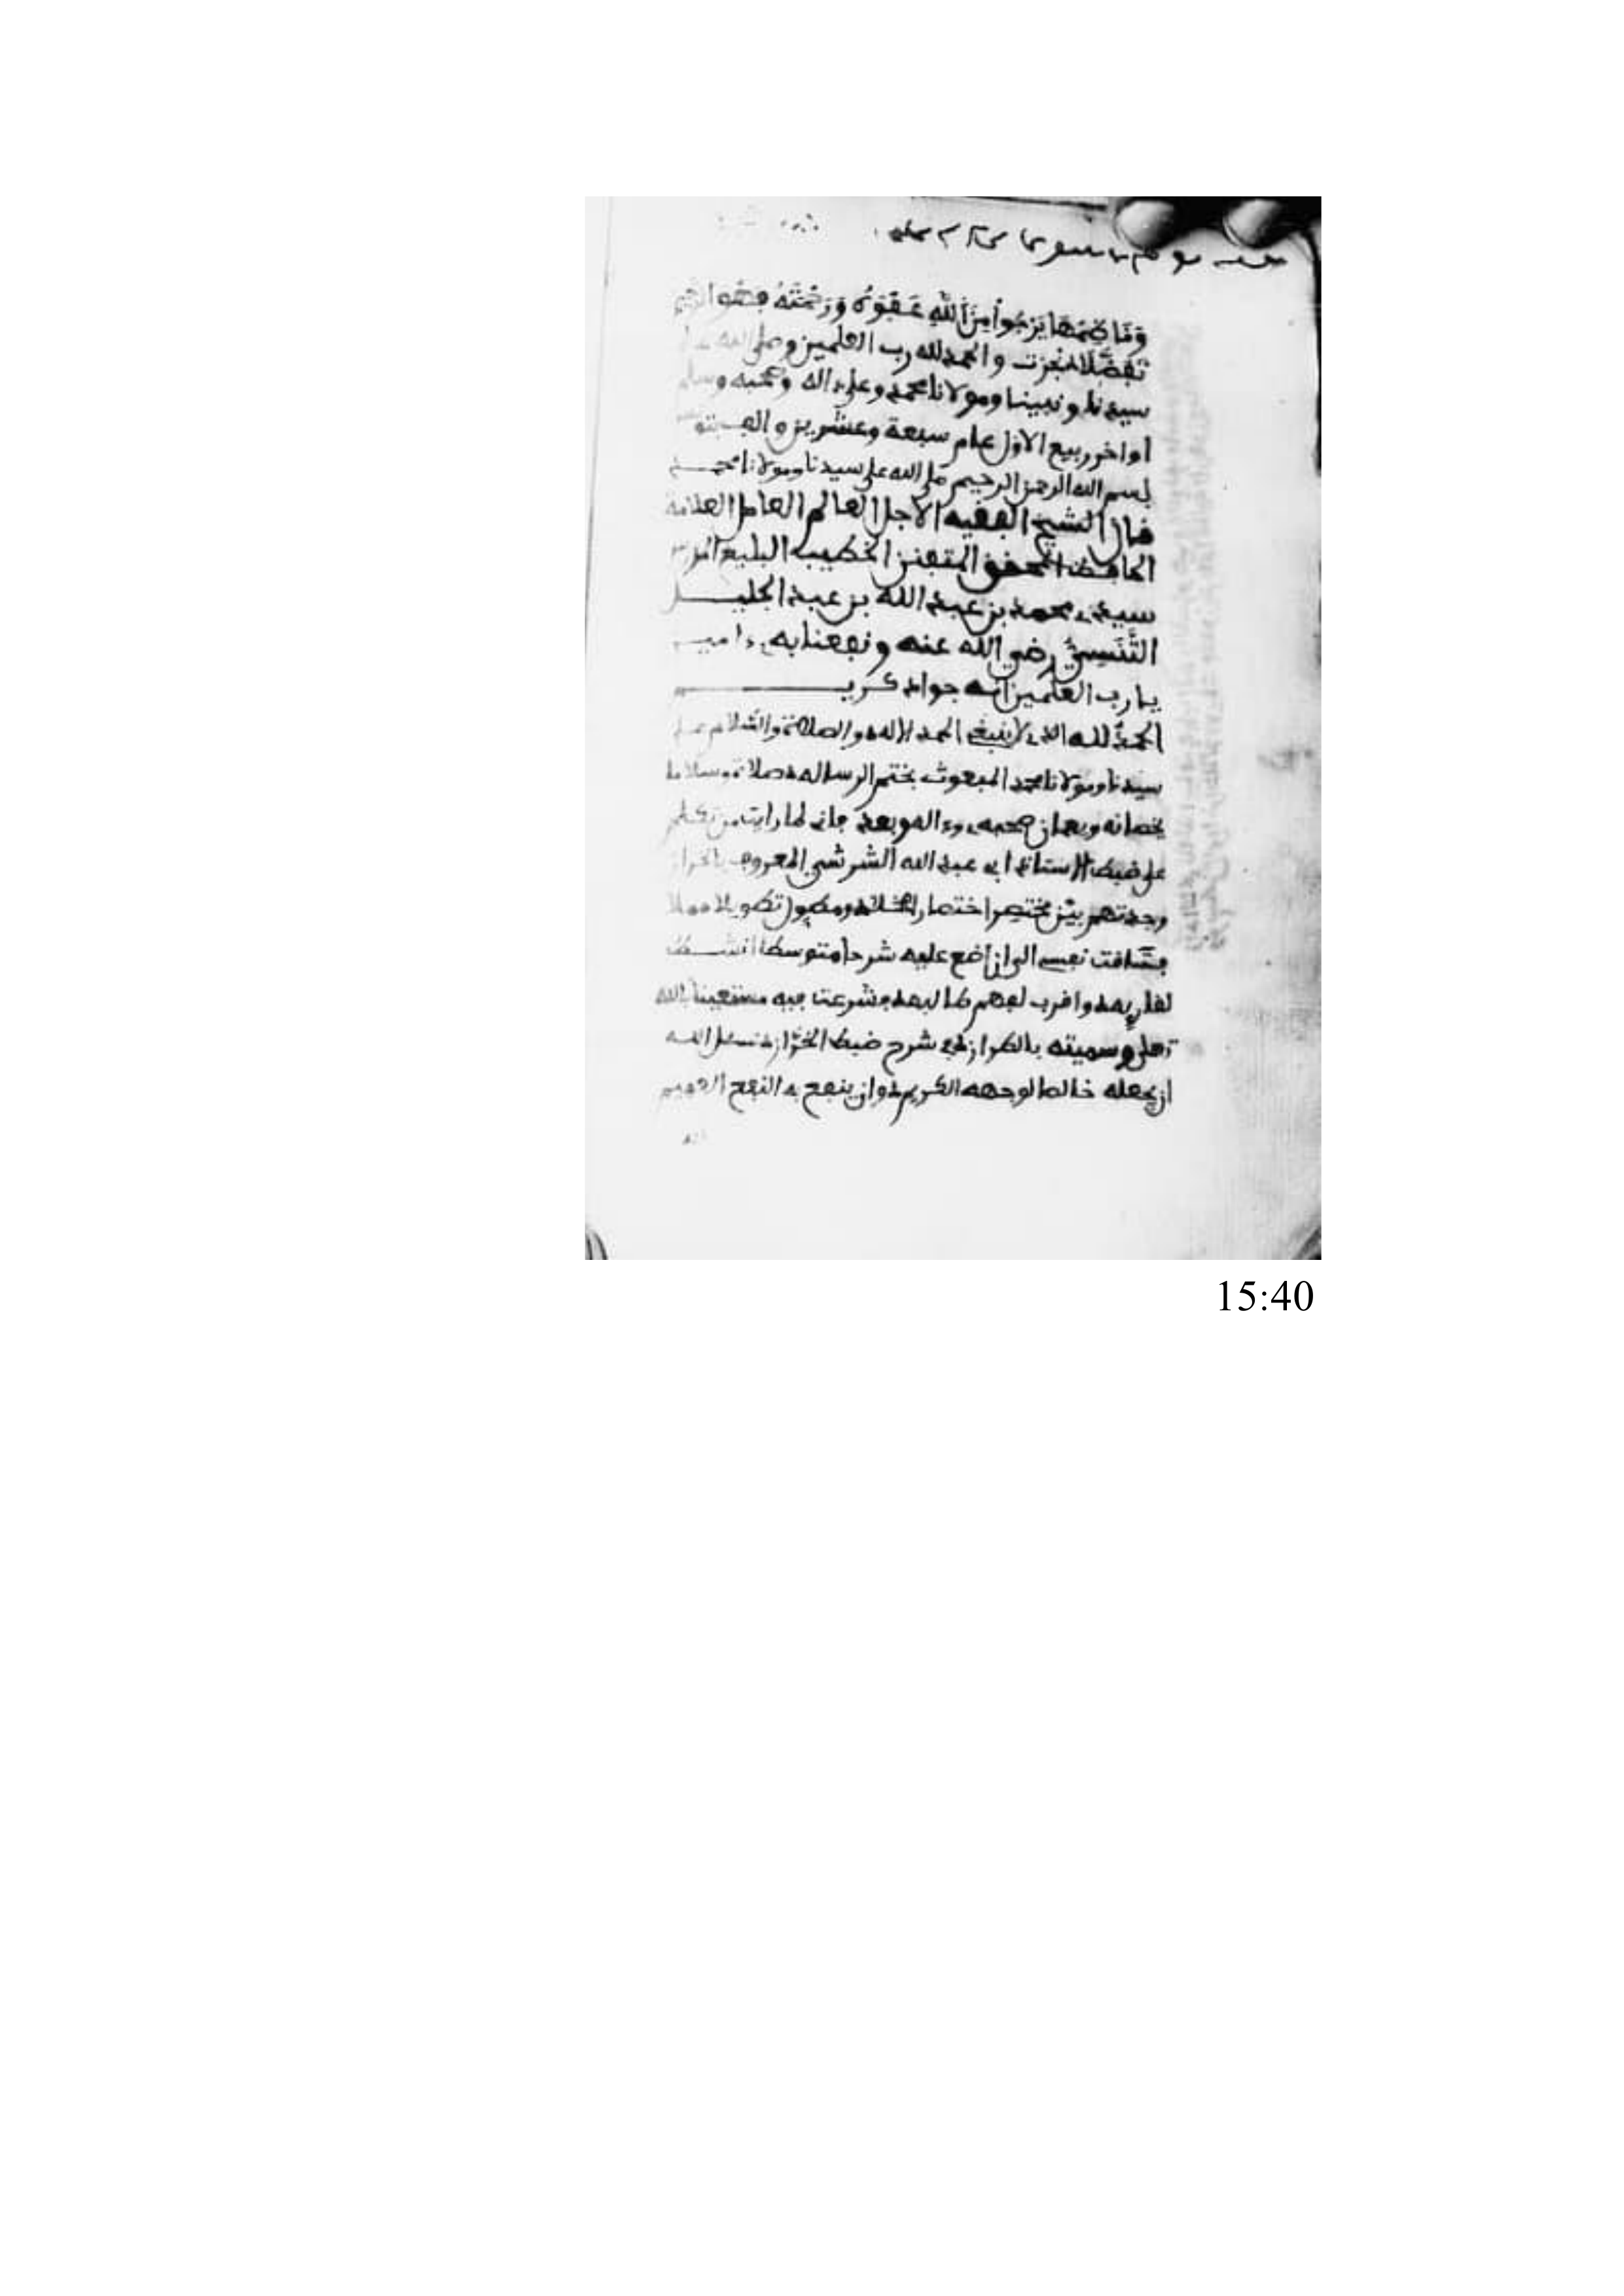 وناظمها يرجوا من الله عفوه ورحمته فهو
تفضلا نجزت والحمد لله رب العلمين وصلى الله على
سيدنا ونبينا ومولانا محمد وعلى ءاله وصحبه وسلم
اواخر ربيع الاول عام سبعة وعشرين و
بسم الله الرحمن الرحيم صلى الله على سيدنا ومولانا محمد
قال الشيخ الفقيه الاجل العالم العامل العلامة
الحافظ المحقق المتفنن الخطيب البليغ
سيدي محمد بن عبد الله بن عبد الجليل
التنسي رضي الله عنه ونفعنا به ءامين
يا رب العلمين انه جواد كريم
الحمد لله الذي لا ينبغي الحمد الا له والصلاة والسلام على
سيدنا ومولانا محمد المبعوث بختم الرساله صلاة وسلاما
يخصانه ويعمان صحبه وءاله وبعد فاني لما رايت من تكلم
على ضبط الاستاذ ابي عبد الله الشرشي المعروف بالخراز
وجدتهم بين مختصر اختصارا مخلا ومطول تطويلا مملا
فتاقت نفسي الى ان اضع عليه شرحا متوسطا انشط
لقاريه واقرب لفهم طالبه فشرعت فيه مستعينا بالله
تعلى وسميته بالطراز في شرح ضبط الخراز نسئل الله
ان يجعله خالصا لوجهه الكريم وان ينفع به النفع العميم
15:40